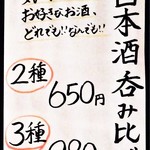 日本酒呑み比べ
お好きなお酒、
どれでも!!なんでも!!
2種
650円
3種